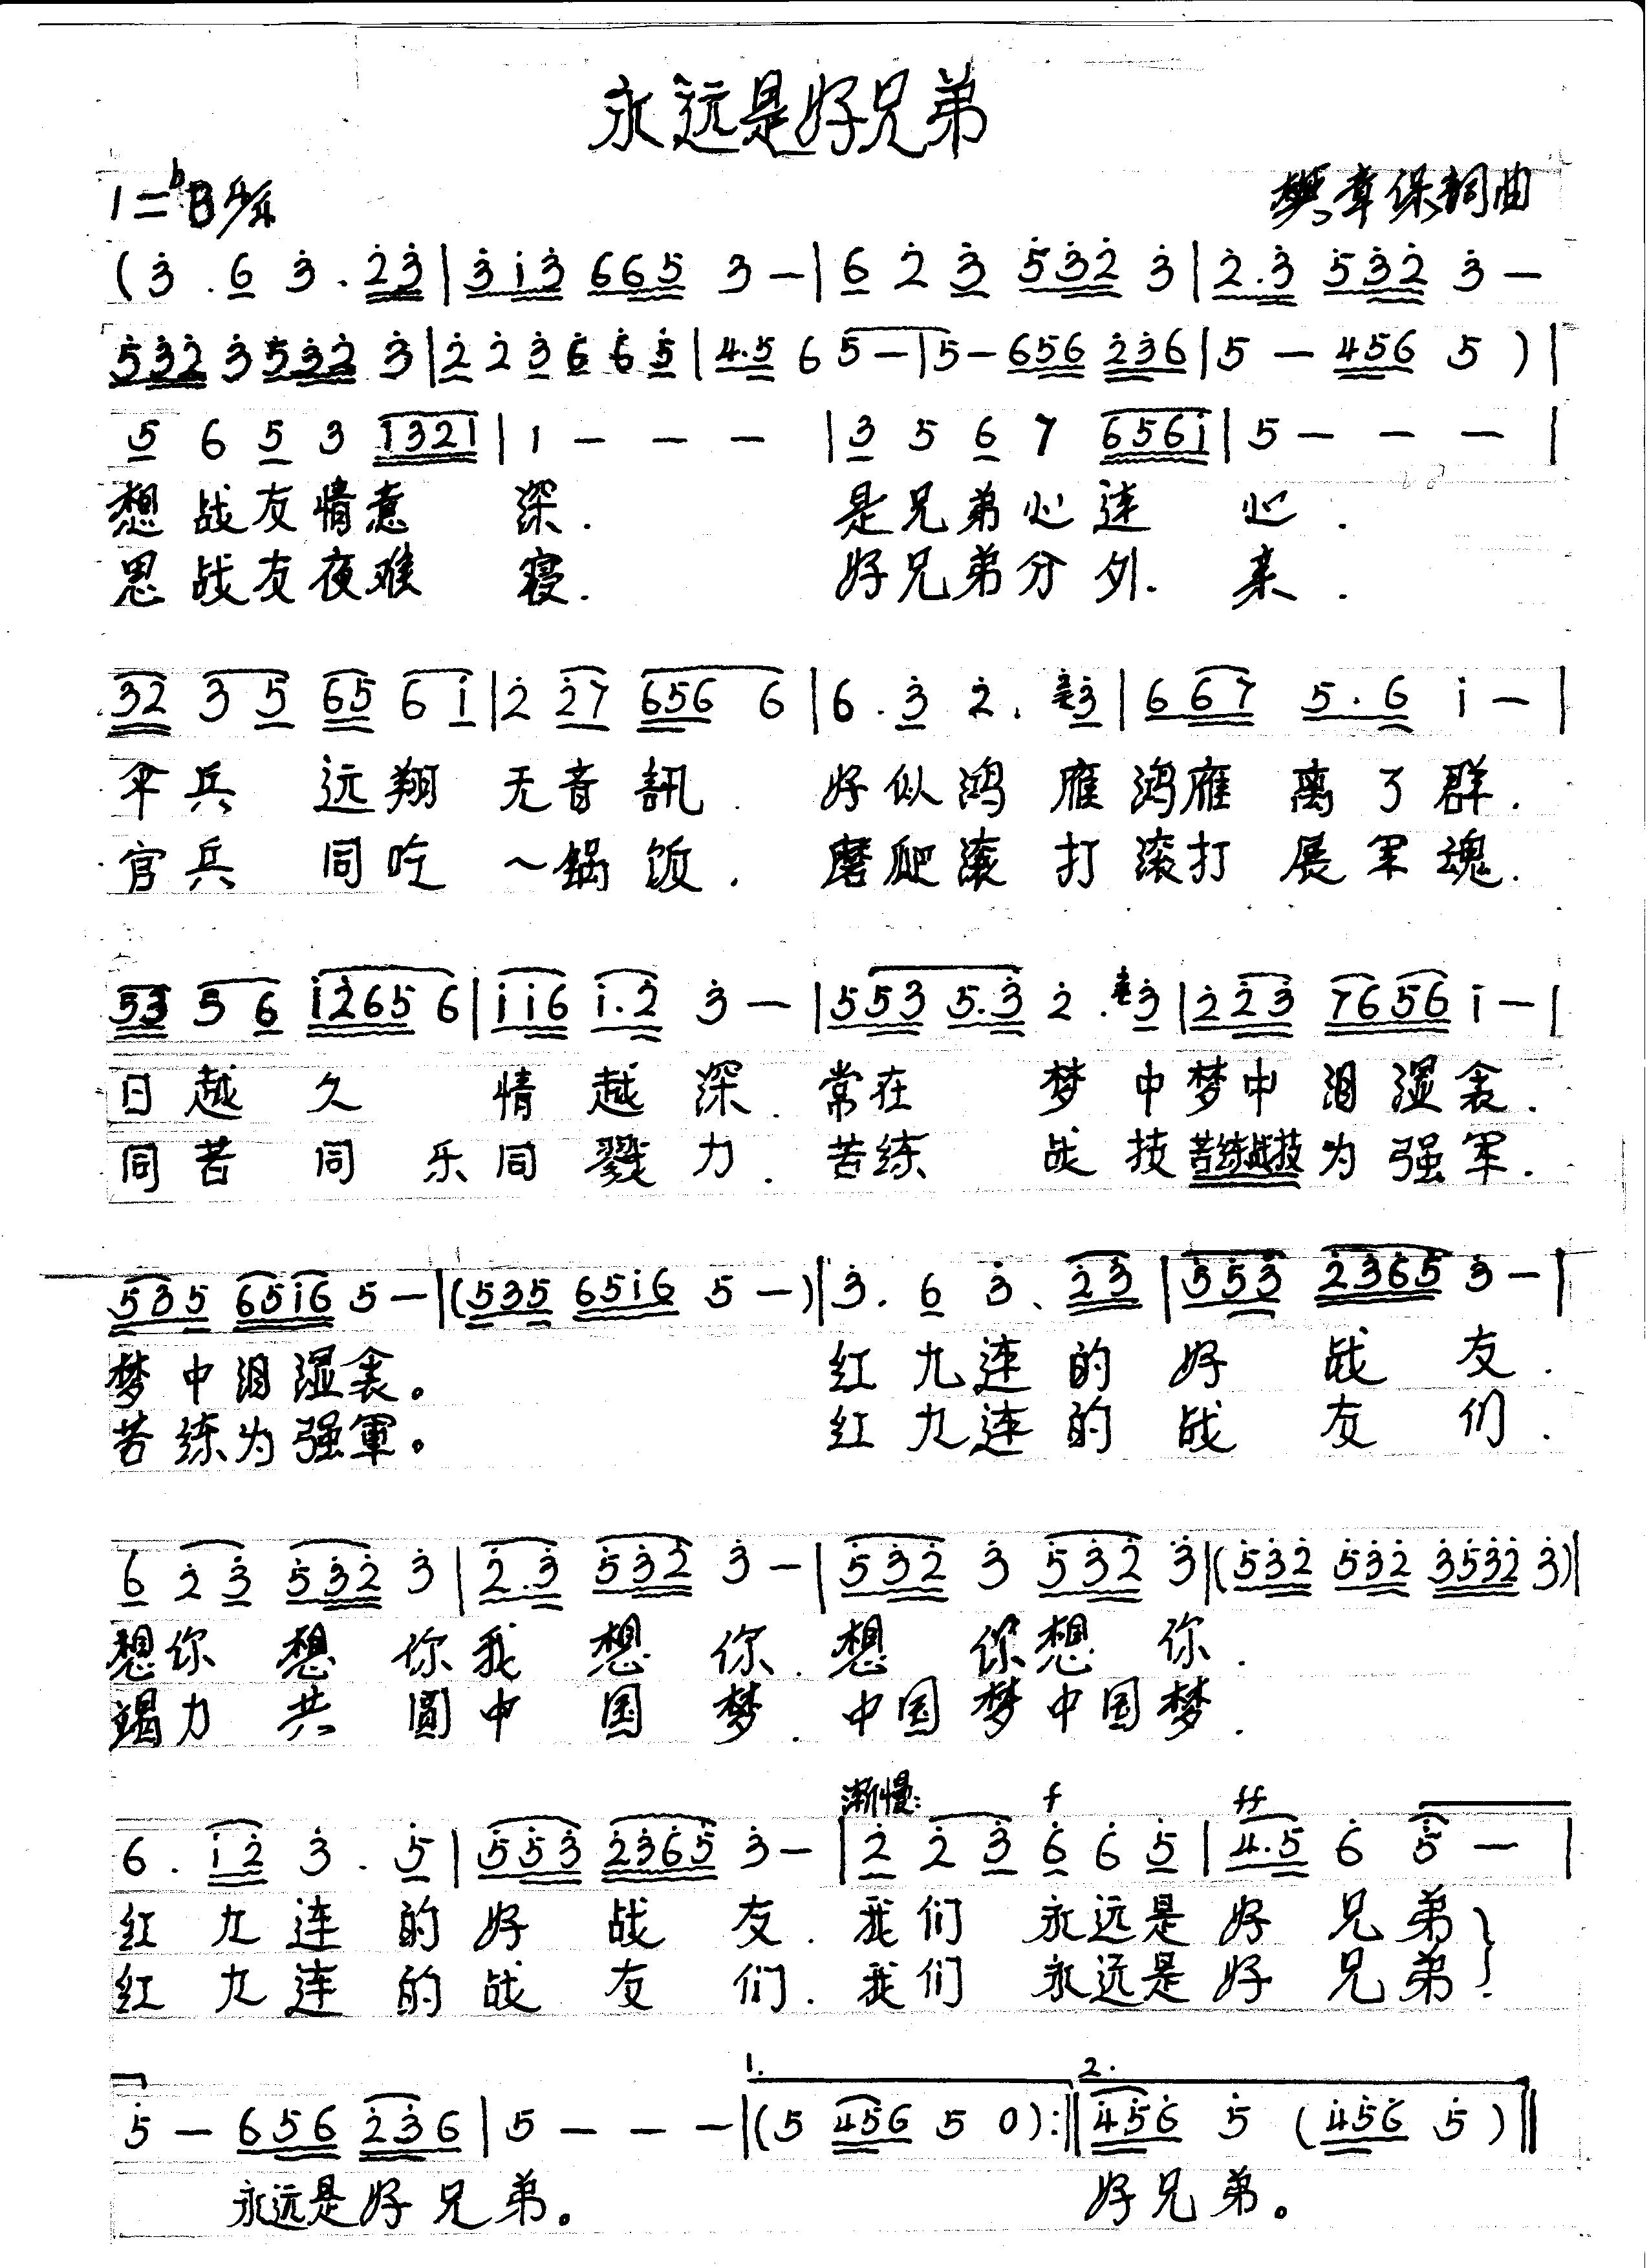 永远是好兄弟
1=♭B 4/4
樊章保词曲
(3̇.6 3̇.2̇3̇|3̇1̇3̇ 665 3-|6 2̇ 3̇ 5̇3̇2̇ 3̇|2̇.3̇ 5̇3̇2̇ 3̇-
5̇3̇2̇ 3̇ 5̇3̇2̇ 3̇|2̇ 2̇ 3̇ 6̇ 6̇ 5̇|4.5 6 5-|5-656 2̇3̇6|5-456 5)|
5 6 5 3 1321|1---|3 5 6 7 6561̇|5---|
想战友情意深.是兄弟心连心.
思战友夜难寝.好兄弟分外.亲.
32 3 5 65 6 1̇|2̇ 2̇7 656 6|6.3̇ 2̇.3̇|6 67 5.6 1̇-|
伞兵远翔无音訊.好似鸿雁鸿雁离了群.
官兵同吃一锅饭.磨爬滚打滚打展军魂.
53 5 6 1̇2̇65 6|1̇1̇6 1̇.2̇ 3̇-|553 5.3̇ 2̇.3̇|2̇2̇3̇ 7656 1̇-|
日越久情越深.常在梦中梦中泪湿衾.
同苦同乐同戮力.苦练战技苦练战技为强军.
535 651̇6 5-|(535 651̇6 5-)|3̇.6 3̇.2̇3̇|5̇5̇3̇ 2̇3̇6̇5̇ 3̇-|
梦中泪湿衾。红九连的好战友.
苦练为强軍。红九连的战友们.
6 2̇ 3̇ 5̇3̇2̇ 3̇|2̇.3̇ 5̇3̇2̇ 3̇-|5̇3̇2̇ 3̇ 5̇3̇2̇ 3̇|(5̇3̇2̇ 5̇3̇2̇ 3̇5̇3̇2̇ 3̇)|
想你想你我想你.想你想你.
竭力共圆中国梦.中国梦中国梦.
渐慢: f ff
6.1̇2̇ 3̇.5̇|5̇5̇3̇ 2̇3̇6̇5̇ 3̇-|2̇ 2̇ 3̇ 6̇ 6̇ 5̇|4̇.5̇ 6̇ 5̇-|
红九连的好战友.我们永远是好兄弟}
红九连的战友们.我们永远是好兄弟}
1. 2.
5̇-656 2̇3̇6|5---|(5 456 5 0):‖4̇5̇6̇ 5̇(4̇5̇6̇ 5̇)‖
永远是好兄弟。好兄弟。